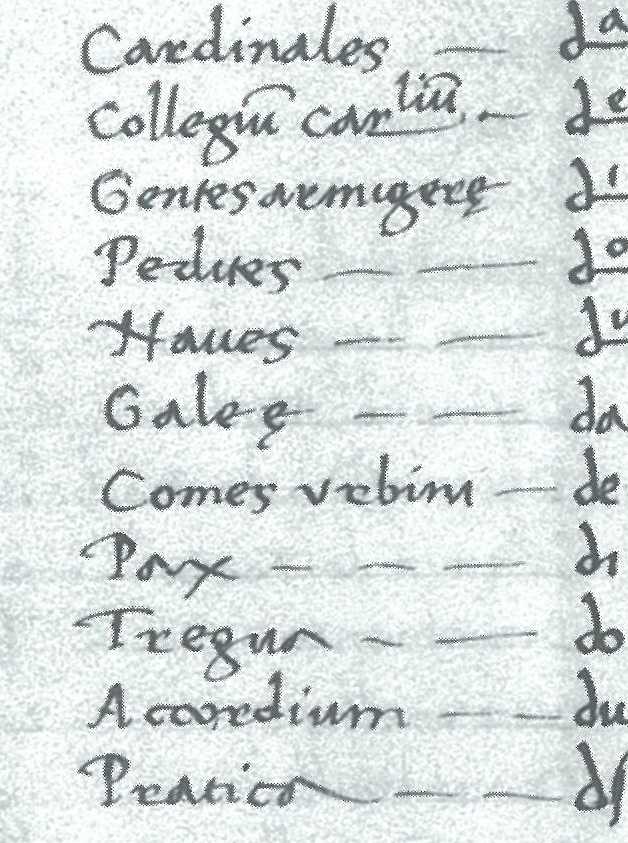 Cardinales — da
Collegiū carliū — de
Gentes armigerę — di
Pedites — — do
Naues — — du
Galeę — — da
Comes vrbini — de
Pax — — — di
Tregua — — do
Acordium — — du
Pratica — — — df